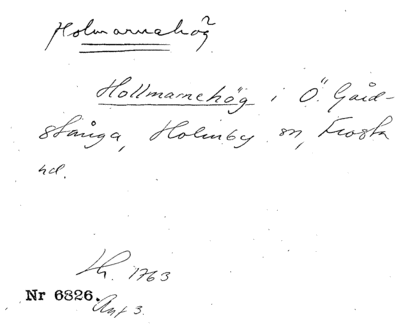 Holmarnehög
Hollmarnehög i Ö. Gård-
stånga, Holmby sn, Frosta
hd.
Lh. 1763
Nr 6826.
Ant 3.